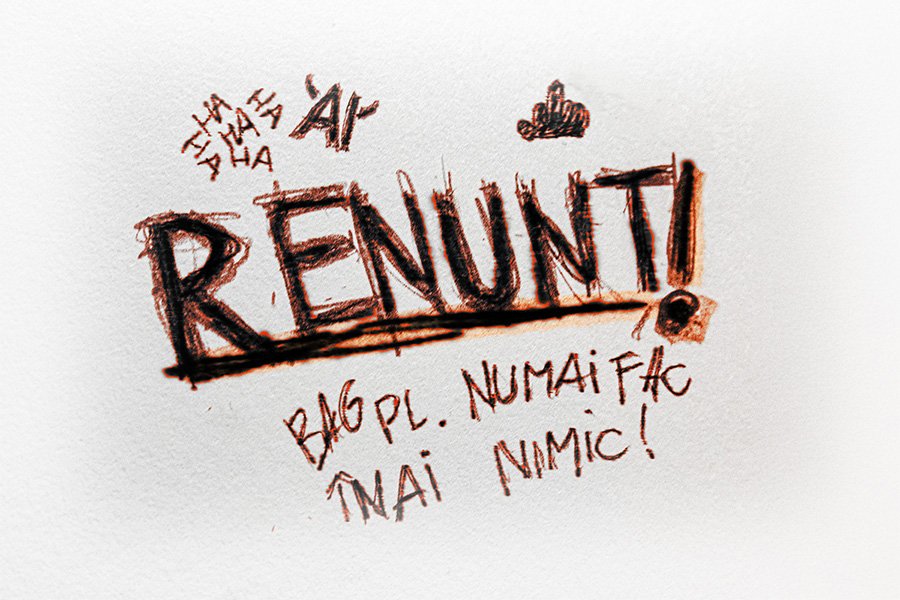 HA HA
HA
HA HA
RENUNT!
BAG PL. NUMAI FAC
ÎNAI NIMIC!